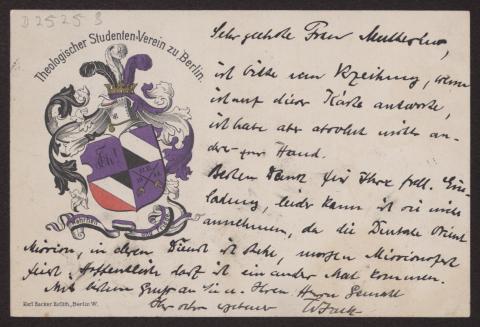 D 2525 3
Theologischer Studenten-Verein zu Berlin.
Sehr geehrte Frau
ich bitte um Verzeihung, wenn
ich auf dieser Karte antworte,
ich habe aber absolut nichts an-
deres zur Hand.
Besten Dank für Ihre frdl. Ein-
ladung, leider kann ich sie nicht
annehmen, da die Deutsche Orient
Mission, in deren Dienst ich stehe, morgen Missionsfest
feiert. Hoffentlich darf ich ein ander Mal kommen.
Mit bestem Gruss an Sie u. Ihren Herrn Gemahl
Ihr sehr ergebener
Karl Backer Edlth., Berlin W.